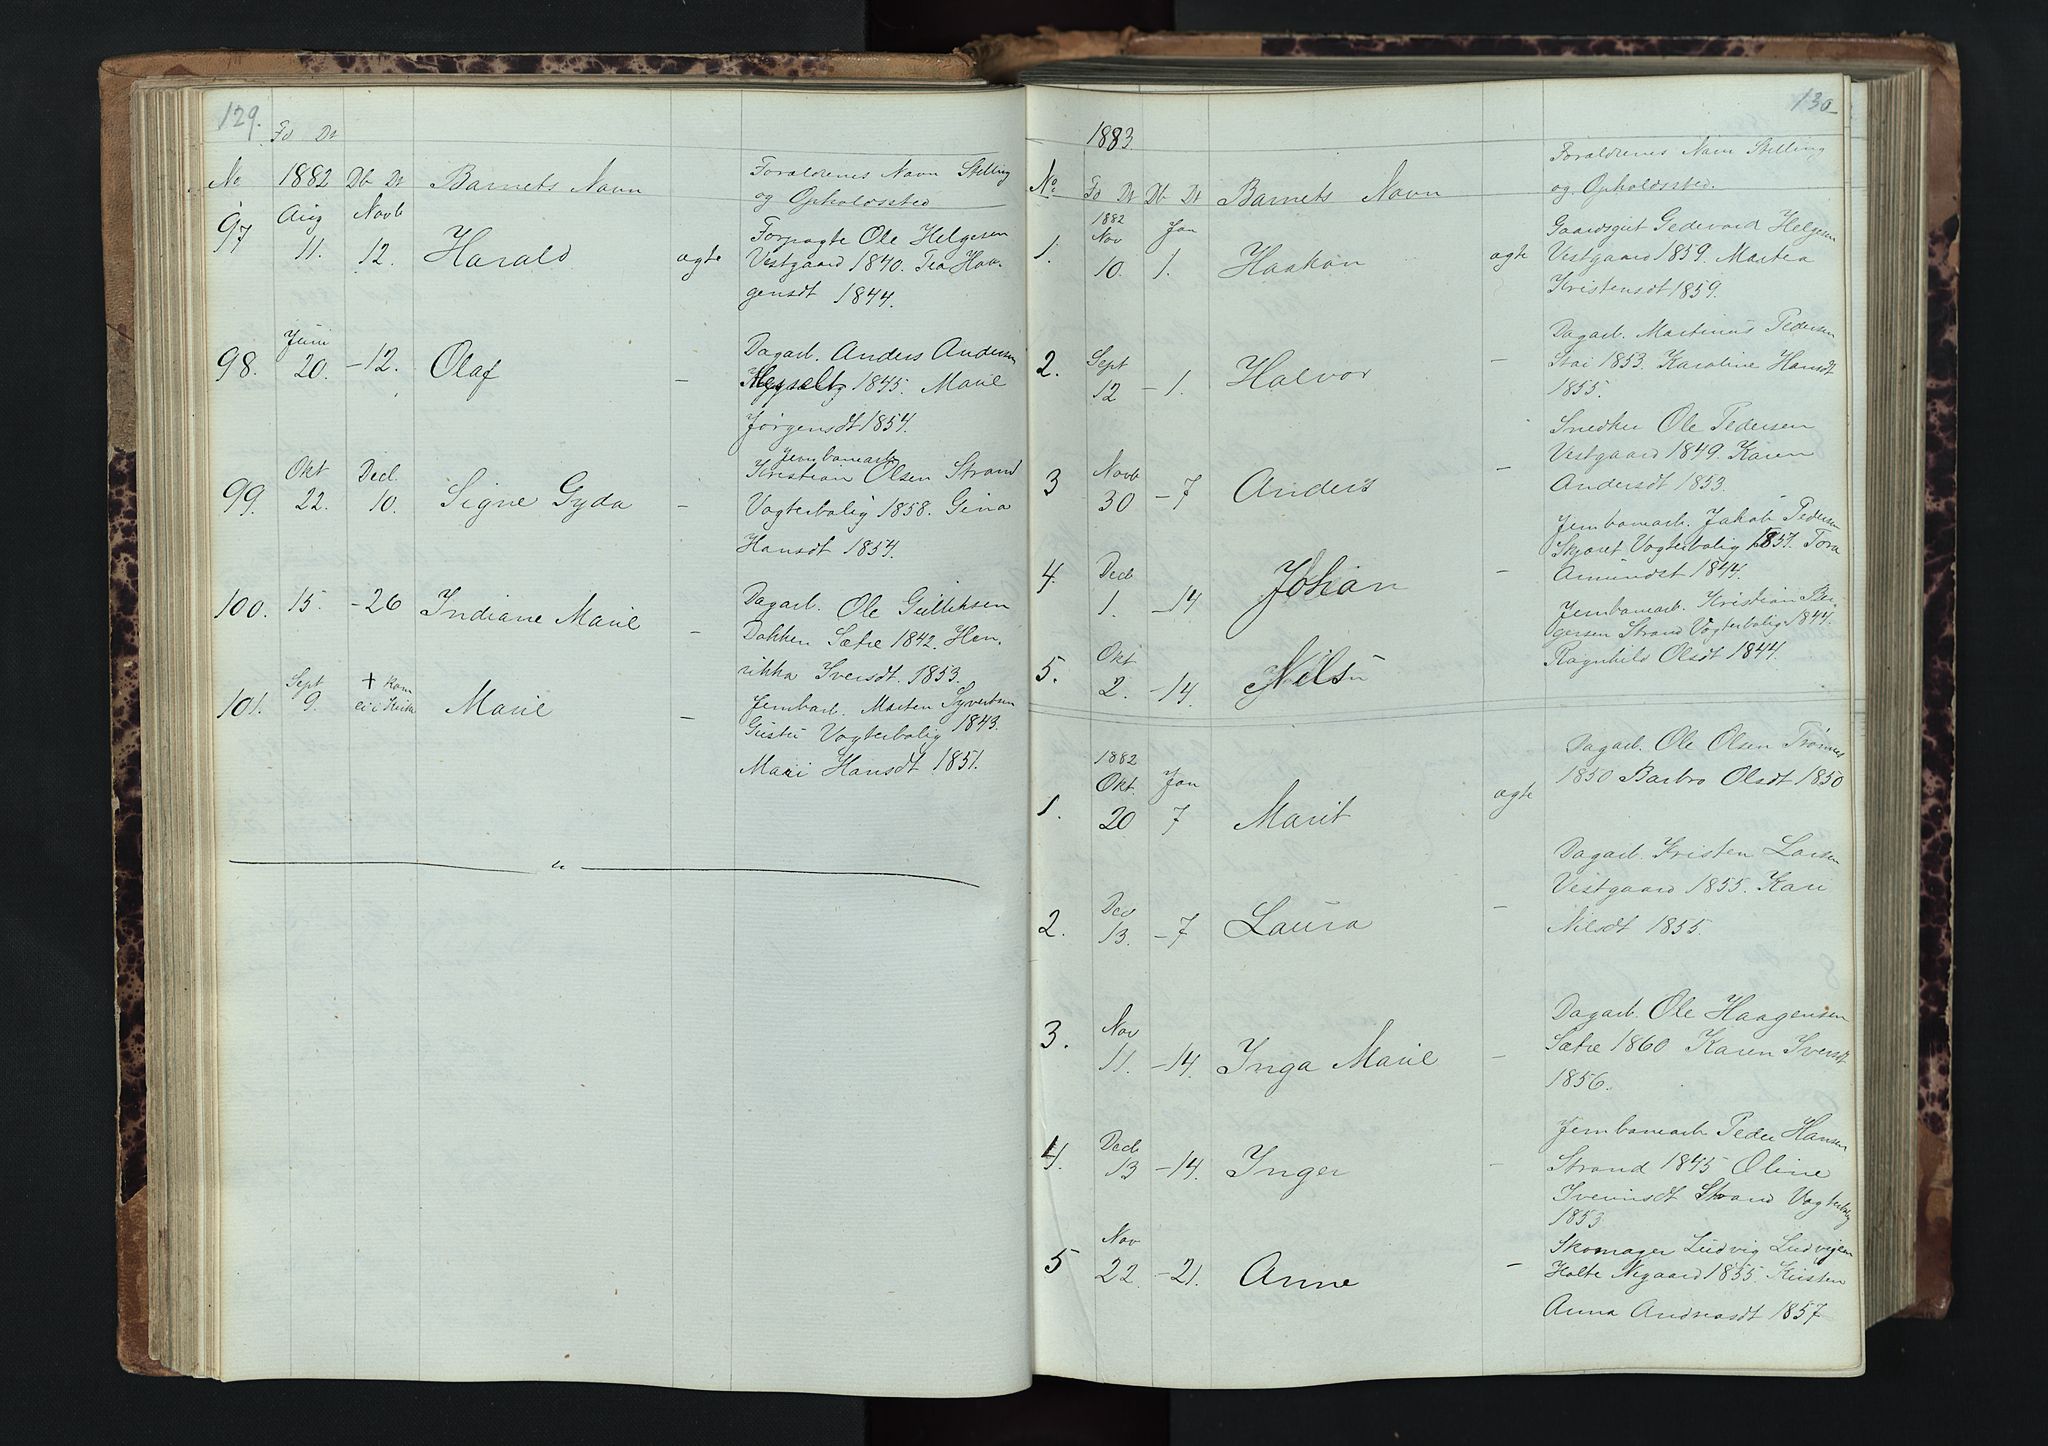 129.
Fd Dt
No 1882 Db Dt Barnets Navn
Forældrenes Navn Stilling
og Opholdssted
97 Aug 11. Novb 12. Harald ægte
Forpagte Ole Helgesen
Vestgaard 1840. Tea Haa-
gensdt 1844.
98. Juni 20. -12. Olaf -
Dagarb. Anders Andersen
1845. Marie
Jørgensdt 1854.
99. Okt 22. Decb. 10. Signe Gyda -
Jernbanearb
Kristian Olsen Strand
Vogterbolig 1858. Gina
Hansdt 1854.
100. 15. -26 Indiane Marie -
Dagarb. Ole Gulliksen
Dakken Sætre 1842. Hen-
rikka Iversdt. 1853.
101. Sept 9. + kom ei i Kirke Marie -
Jernbarb. Morten Syvertsen
Vogterbolig 1843.
Mari Hansdt 1851.
130
1883.
No. Fd Dt Db Dt Barnets Navn
Forældrenes Navn Stilling
og Opholdssted.
1. 1882 Nov 10. Jan 1. Haakon ægte
Gaardsgut Gedevard Helgesen
Vestgaard 1859. Martea
Kristensdt 1859.
2. Sept 12 -1. Halvor -
Dagarb. Martinus Pedersen
Stai 1853. Karoline Hansdt
1855.
3 Novb 30 -7 Anders -
Snedker Ole Pedersen
Vestgaard 1849. Karen
Andersdt 1853.
4. Decb 1. -14 Johan -
Jernbanearb. Jakob Pedersen
Skjæret Vogterbolig 1857. Tora
Amundsdt 1844.
5. Okt 2. -14. Nils
Jernbanearb. Kristian Bir-
gersen Strand Vogterbolig 1844.
Ragnhild Olsdt 1844.
1. 1882 Okt. 20 Jan 7 Marit ægte
Dagarb. Ole Olsen Trønnes
1850 Barbro Olsdt 1850
2. Dec 13. -7 Laura -
Dagarb. Kristen Larsen
Vestgaard 1855. Kari
Nilsdt 1855.
3. Nov 11. -14. Inga Marie -
Dagarb. Ole Haagensen
Sætre 1860 Karen Iversdt
1856.
4. Decb 13 -14. Inger -
Jernbanearb Peder Hansen
Strand 1845 Oline
Sveinsdt Strand Vogterbolig
1853
5 Nov 22. -21. Anne -
Skomager Ludvig Ludvigsen
Holte Negaard 1855. Kristen
Anna Andreasdt 1857